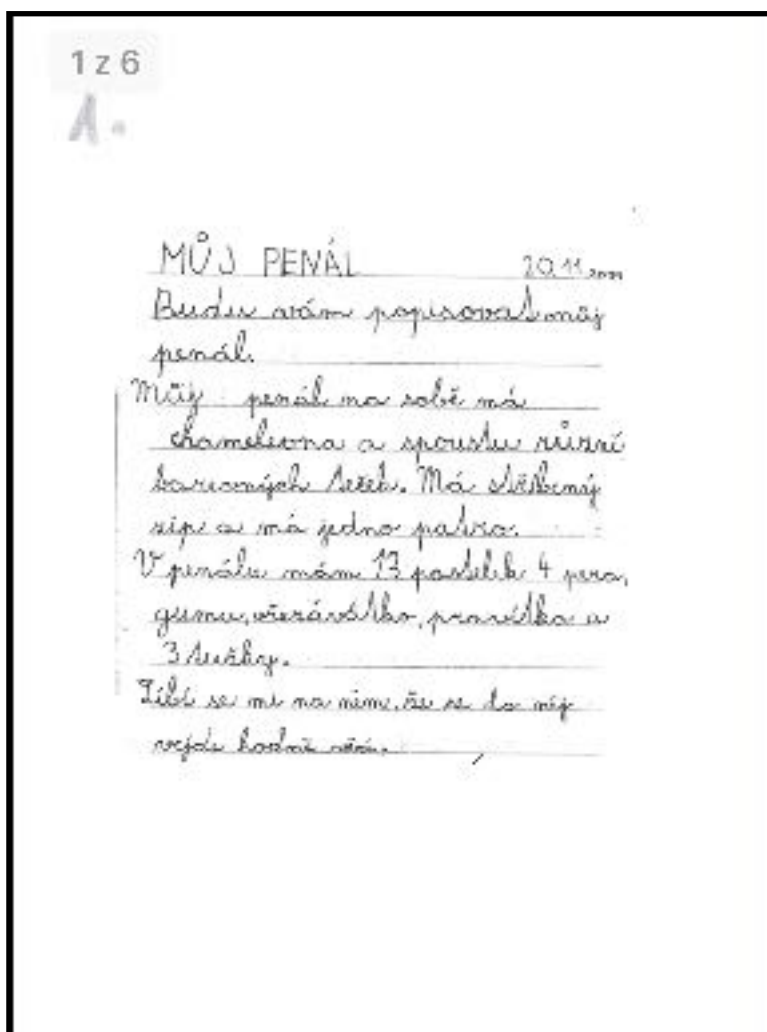 1 z 6
A.
MŮJ PENÁL 20.11
Budu vám popisovat můj
penál.
Můj penál na sobě má
chameleona a spoustu různě
barevných teček. Má stříbrný
zip a má jedno patro.
V penálu mám 13 pastelek 4 pera,
gumu, ořezávátko, pravítka a
3 tužky.
Líbí se mi na něm, že se do něj
vejde hodně věcí.